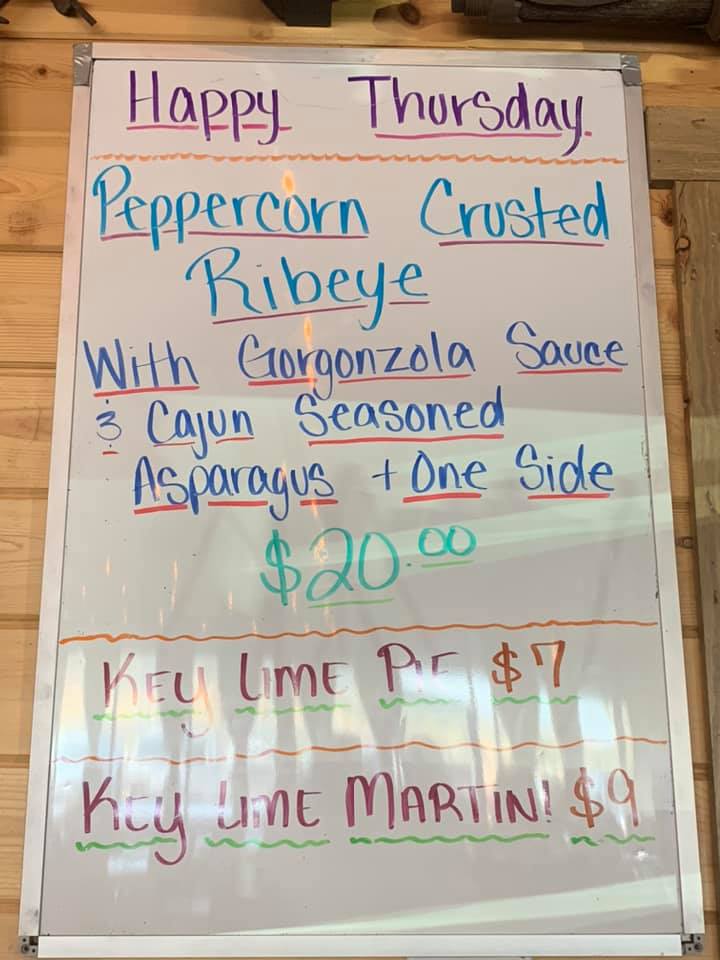 Happy Thursday
Peppercorn Crusted
Ribeye
With Gorgonzola Sauce
& Cajun Seasoned
Asparagus + One Side
$20.00
KEY LIME PIE $7
KEY LIME MARTINI $9